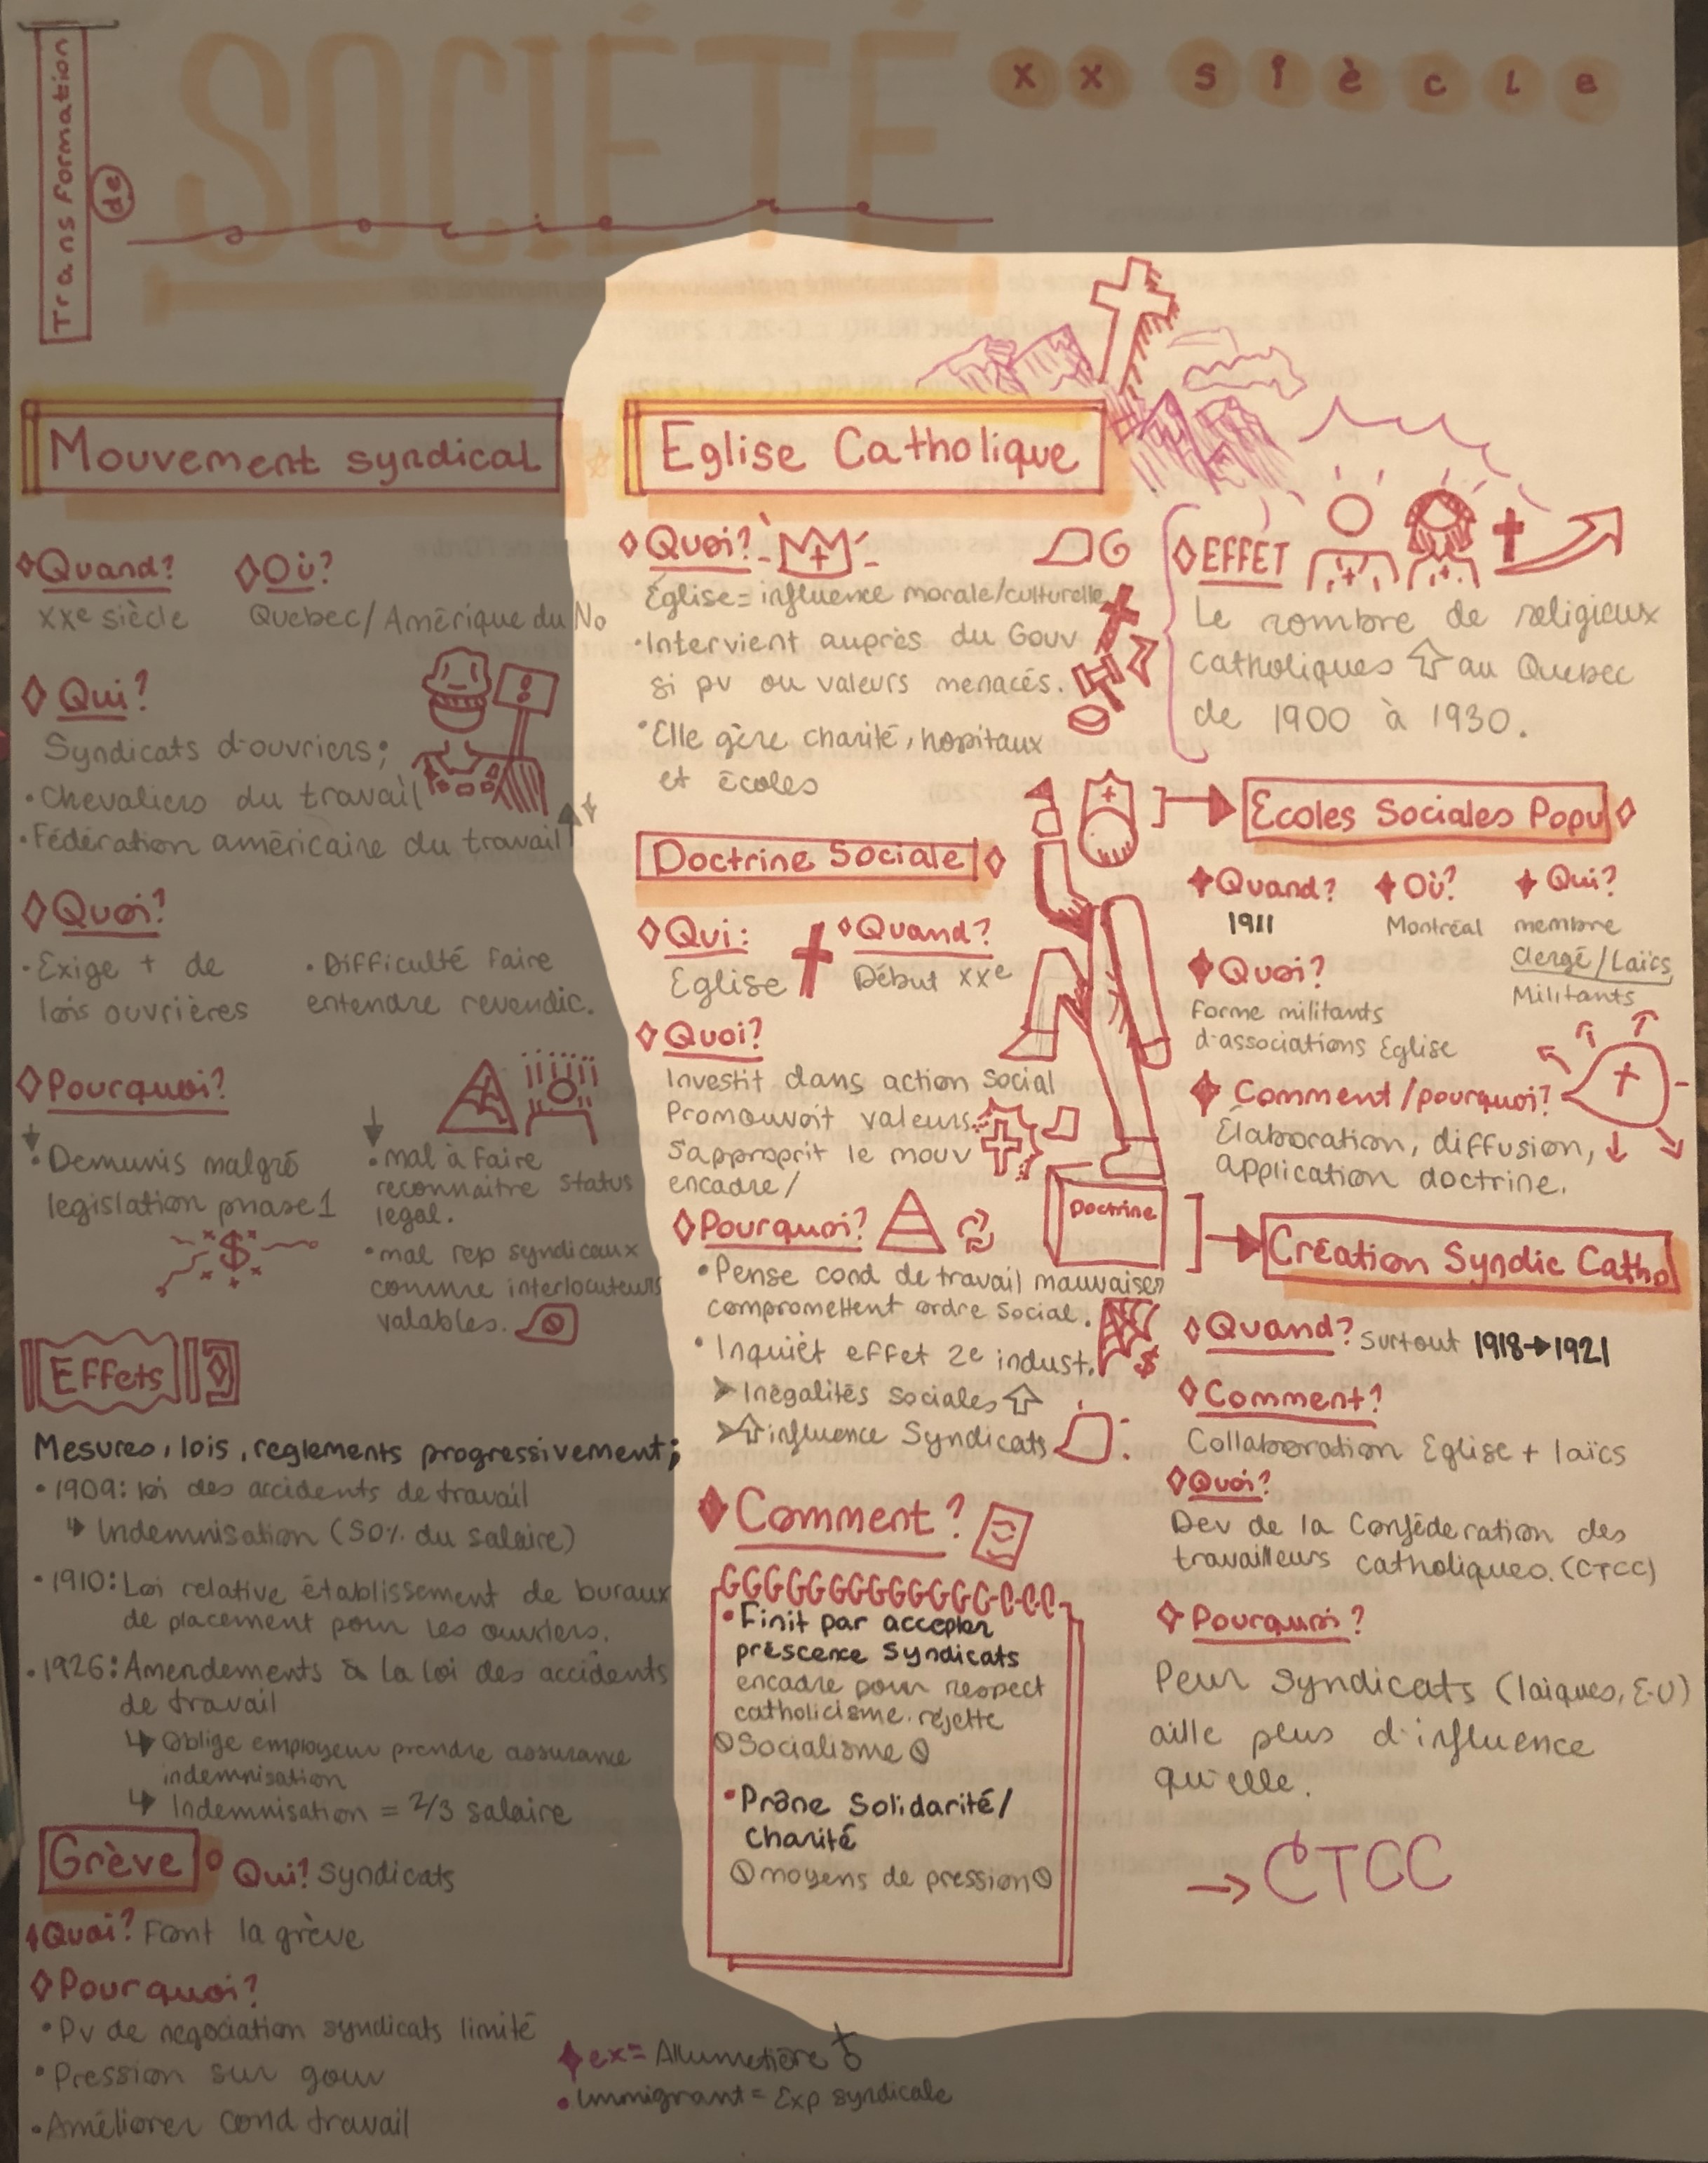 Transformation
de
SOCIÉTÉ
XX siècle
Mouvement syndical
Quand?
XXe siècle
Où?
Quebec/Amérique du No
Qui?
Syndicats d'ouvriers;
• Chevaliers du travail
• Fédération américaine du travail
Quoi?
• Exige + de
lois ouvrières
• Difficulté faire
entendre revendic.
Pourquoi?
• Demunis malgré
legislation phase 1
$
• mal à faire
reconnaitre status
legal.
• mal rep syndicaux
comme interlocuteurs
valables.
Effets
Mesures, lois, reglements progressivement;
• 1909: loi des accidents de travail
↳ Indemnisation (50% du salaire)
• 1910: Loi relative établissement de buraux
de placement pour les ouvriers.
• 1926: Amendements à la loi des accidents
de travail
↳ Oblige employeur prendre assurance
indemnisation
↳ Indemnisation = 2/3 salaire
Grève
Qui? Syndicats
Quoi? Font la grève
Pourquoi?
• Pv de negociation syndicats limité
• Pression sur gouv
• Améliorer cond travail
ex= Allumetière
• Immigrant = Exp syndicale
Eglise Catholique
Quoi?
Église = influence morale/culturelle
• Intervient auprès du Gouv
si pv ou valeurs menacés.
• Elle gère charité, hopitaux
et écoles
EFFET
Le nombre de religieux
catholiques ⇧ au Quebec
de 1900 à 1930.
Doctrine Sociale
Qui:
Eglise
Quand?
Début XXe
Quoi?
Investit dans action social
Promouvoit valeurs
S'approprit le mouv
encadre/
Pourquoi?
• Pense cond de travail mauvaises
compromettent ordre social.
• Inquièt effet 2e indust.
$
➤ Inégalités sociales ⇧
➤ ⇧ influence Syndicats
Comment?
• Finit par accepter
préscence Syndicats
encadre pour respect
catholicisme. rejette
Socialisme
• Prône Solidarité/
Charité
moyens de pression
Doctrine
Ecoles Sociales Popu
Quand?
1911
Où?
Montréal
Qui?
membre
clergé/Laïcs
Militants
Quoi?
Forme militants
d'associations Eglise
Comment/pourquoi?
Élaboration, diffusion,
application doctrine.
Création Syndic Catho
Quand? Surtout 1918→1921
Comment?
Collaboration Eglise + laïcs
Quoi?
Dev de la Conféderation des
travailleurs catholiques. (CTCC)
Pourquoi?
Peur Syndicats (laïques, É-U)
aille plus d'influence
qu'elle.
→ CTCC